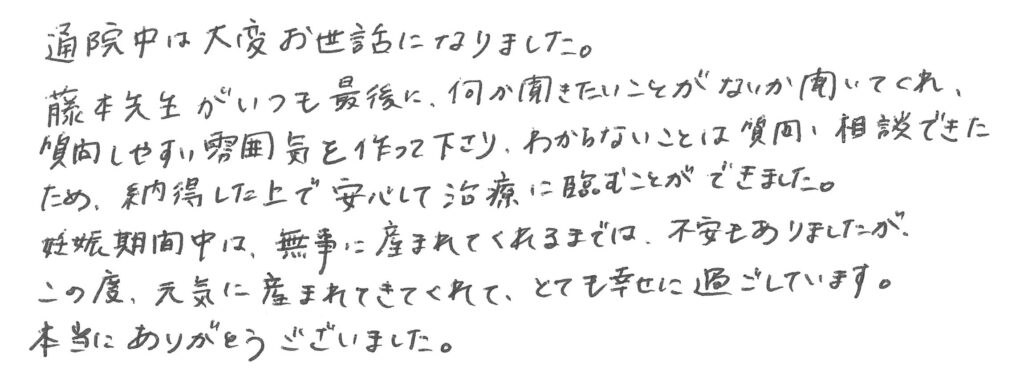 通院中は大変お世話になりました。
藤本先生がいつも最後に、何か聞きたいことがないか聞いてくれ、
質問しやすい雰囲気を作って下さり、わからないことは質問、相談できた
ため、納得した上で安心して治療に臨むことができました。
妊娠期間中は、無事に産まれてくれるまでは、不安もありましたが、
この度、元気に産まれてきてくれて、とても幸せに過ごしています。
本当にありがとうございました。